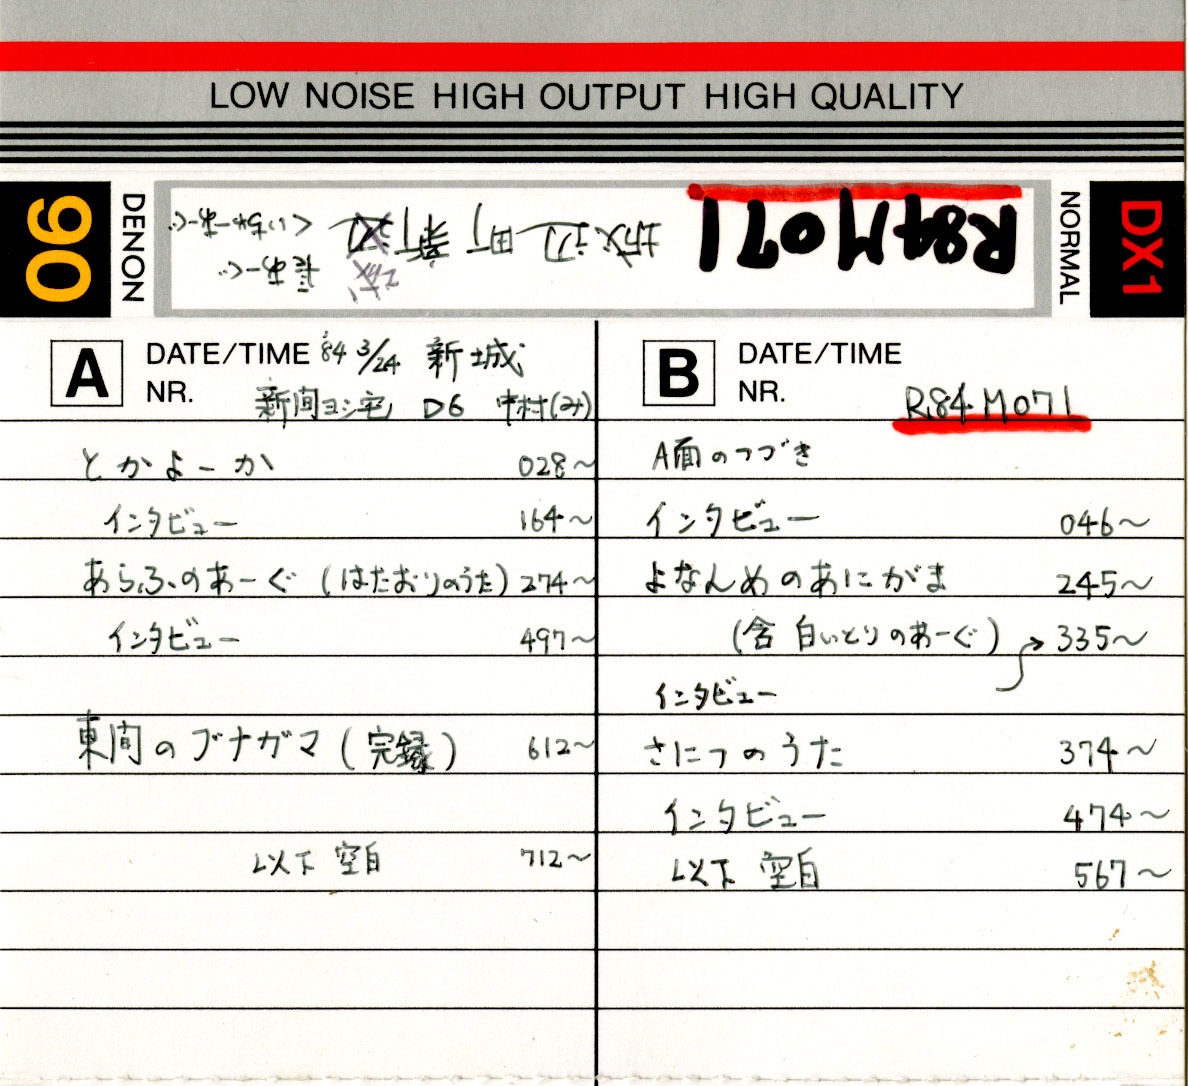 LOW NOISE HIGH OUTPUT HIGH QUALITY
90
DENON
R84M071
城辺町 新城 くいちゃーあーぐ
たあーぐ
NORMAL
DX1
A
DATE/TIME '84 3/24 新城
NR. 新間ヨシ宅 D6 中村(み)
とかよーか 028~
インタビュー 164~
あらふのあーぐ (はたおりのうた) 274~
インタビュー 497~
東間のブナガマ (完録) 612~
以下 空白 712~
B
DATE/TIME
NR. R84M071
A面のつづき
インタビュー 046~
よなんめのあにがま 245~
(含 白いとりのあーぐ) 335~
インタビュー
さにつのうた 374~
インタビュー 474~
以下 空白 567~